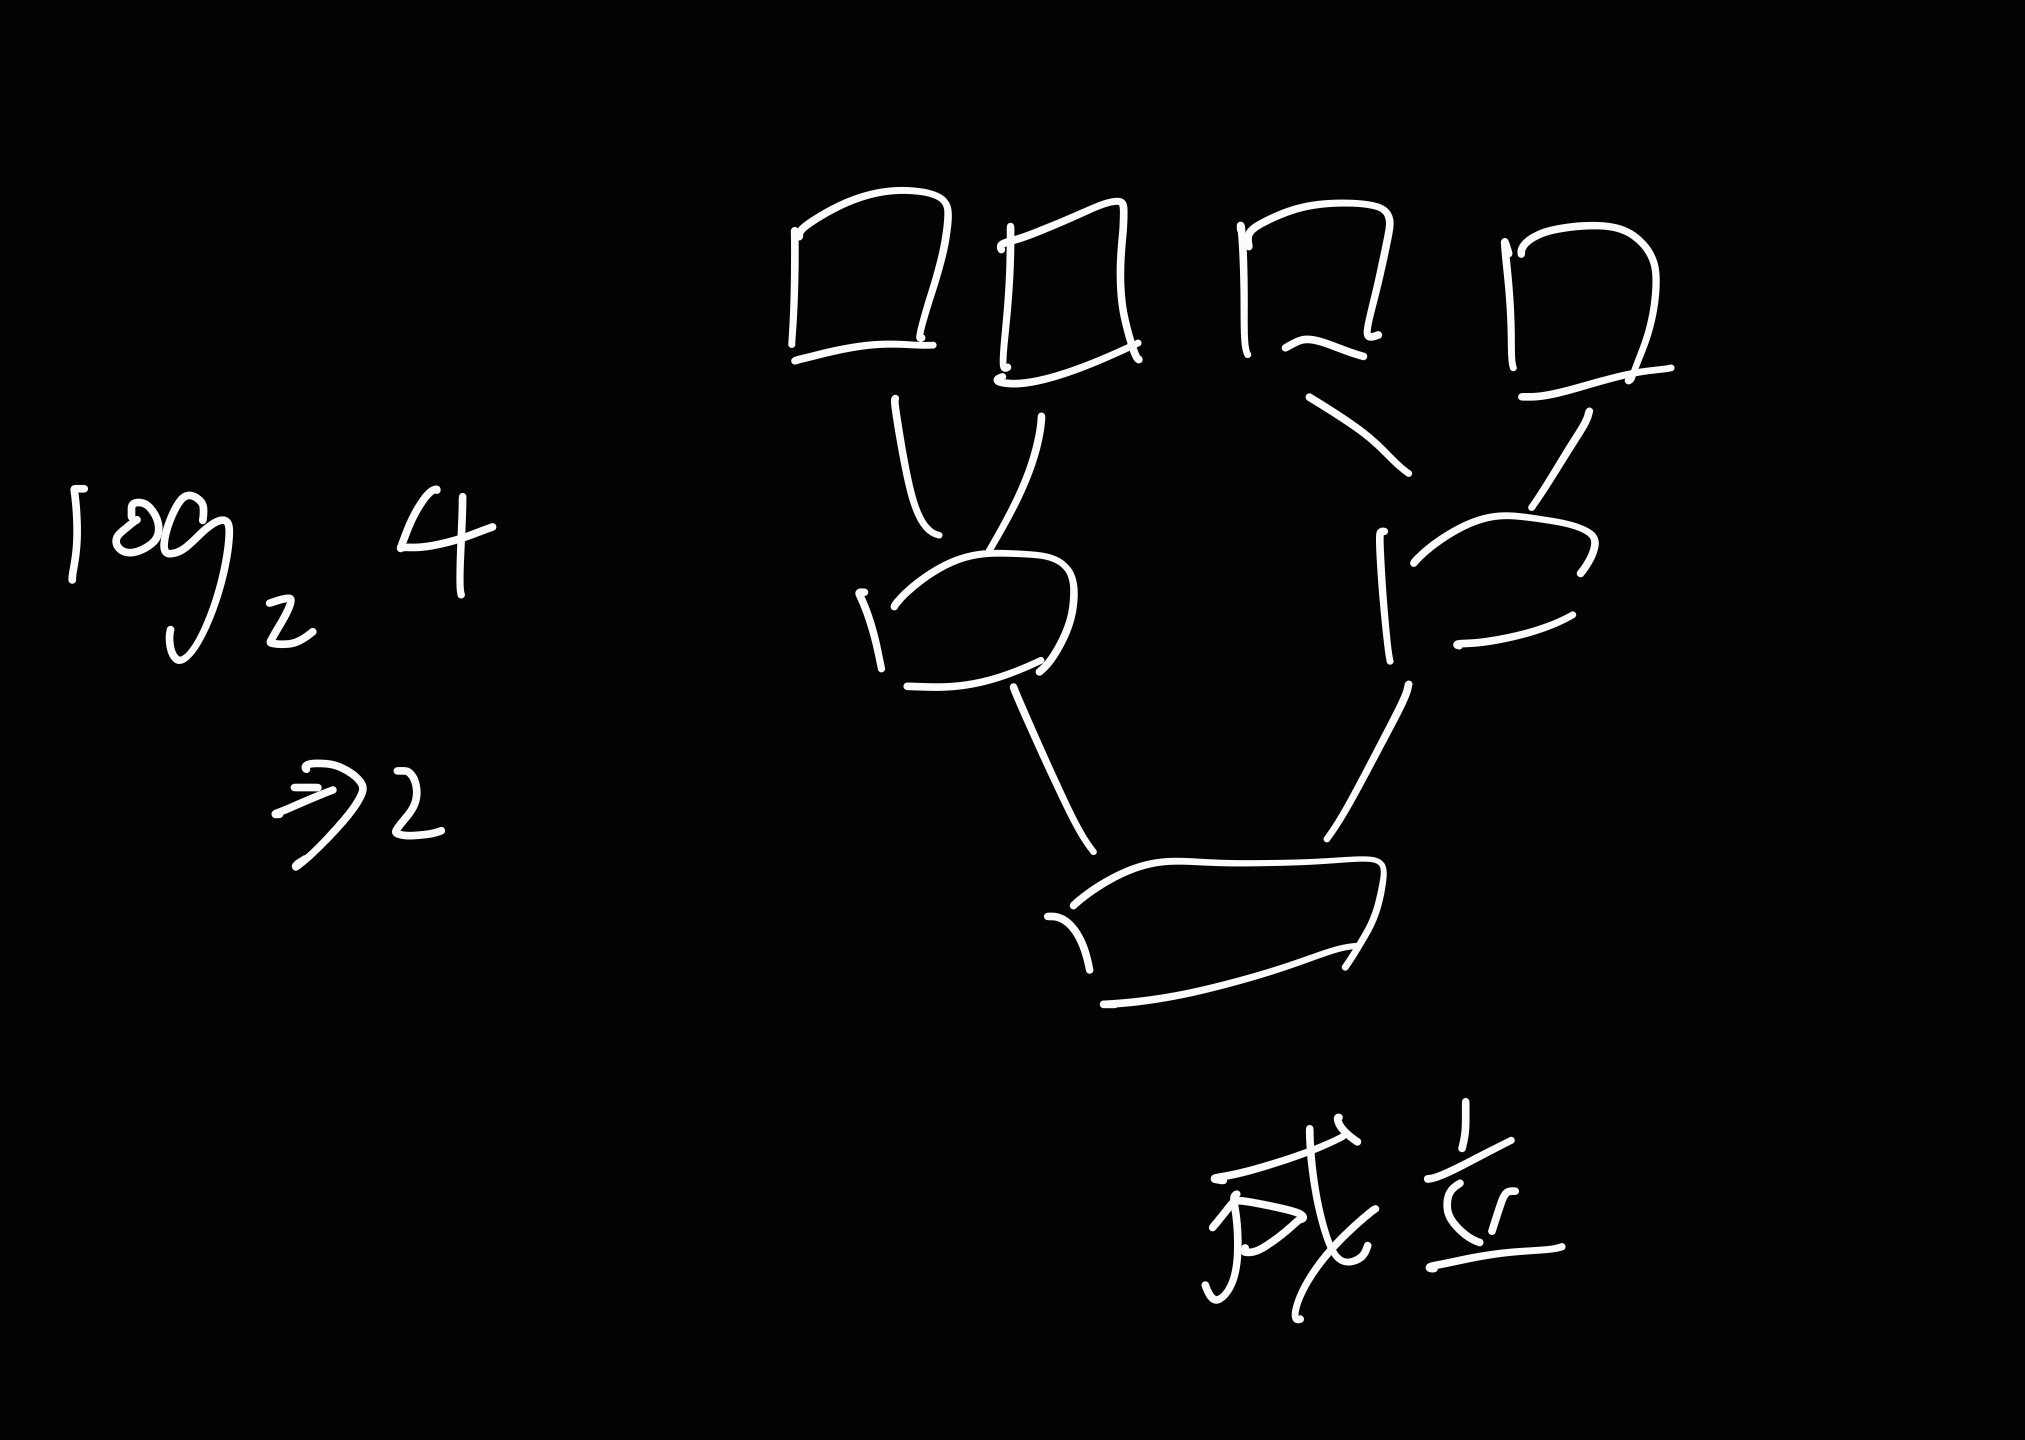 log₂ 4
⩾2
成立